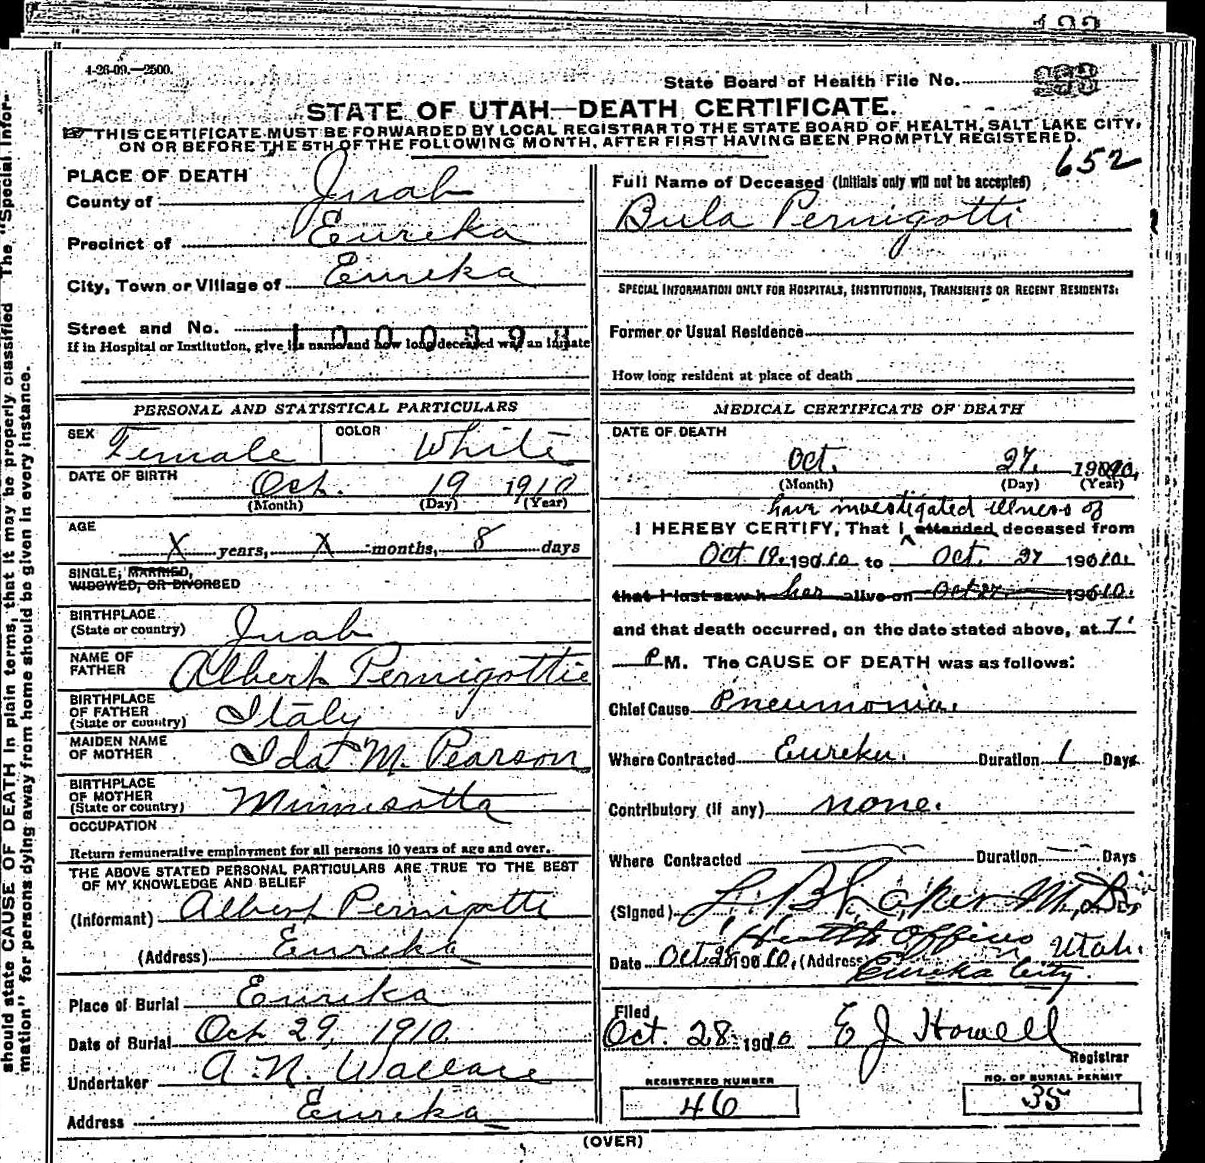 4-26-09.—2500.
State Board of Health File No.
STATE OF UTAH—DEATH CERTIFICATE.
THIS CERTIFICATE MUST BE FORWARDED BY LOCAL REGISTRAR TO THE STATE BOARD OF HEALTH, SALT LAKE CITY,
ON OR BEFORE THE 5TH OF THE FOLLOWING MONTH, AFTER FIRST HAVING BEEN PROMPTLY REGISTERED.
652
PLACE OF DEATH
County of Juab
Precinct of Eureka
City, Town or Village of Eureka
Street and No.
If in Hospital or Institution, give its name and how long deceased was an inmate
Full Name of Deceased (Initials only will not be accepted)
Bula Pernigotti
SPECIAL INFORMATION ONLY FOR HOSPITALS, INSTITUTIONS, TRANSIENTS OR RECENT RESIDENTS:
Former or Usual Residence
How long resident at place of death
PERSONAL AND STATISTICAL PARTICULARS
SEX Female COLOR White
DATE OF BIRTH Oct. 19 1910
(Month) (Day) (Year)
AGE
X years, X months, 8 days
SINGLE, MARRIED,
WIDOWED, OR DIVORCED
BIRTHPLACE
(State or country) Juab
NAME OF
FATHER Albert Pernigottie
BIRTHPLACE
OF FATHER
(State or country) Italy
MAIDEN NAME
OF MOTHER Ida M. Pearson
BIRTHPLACE
OF MOTHER
(State or country) Minnisotta
OCCUPATION
Return remunerative employment for all persons 10 years of age and over.
THE ABOVE STATED PERSONAL PARTICULARS ARE TRUE TO THE BEST
OF MY KNOWLEDGE AND BELIEF
(Informant) Albert Pernigotti
(Address) Eureka
Place of Burial Eureka
Date of Burial Oct 29, 1910.
Undertaker A. N. Wallace
Address Eureka
MEDICAL CERTIFICATE OF DEATH
DATE OF DEATH
Oct. 27. 1910,
(Month) (Day) (Year)
have investigated illness of
I HEREBY CERTIFY, That I attended deceased from
Oct 19. 1910 to Oct. 27 1910.
that I last saw her alive on Oct 27 1910.
and that death occurred, on the date stated above, at 7
P M. The CAUSE OF DEATH was as follows:
Chief Cause Pneumonia.
Where Contracted Eureka. Duration 1 Days
Contributory (if any) none.
Where Contracted Duration Days
(Signed) M.D.
Health Officer
Date Oct. 28 1910, (Address) Utah.
Eureka City.
Filed
Oct. 28 1910 E J Howell
Registrar
REGISTERED NUMBER
46
NO. OF BURIAL PERMIT
35
(OVER)
should state CAUSE OF DEATH in plain terms, that it may be properly classified The "Special Infor-
mation" for persons dying away from home should be given in every instance.